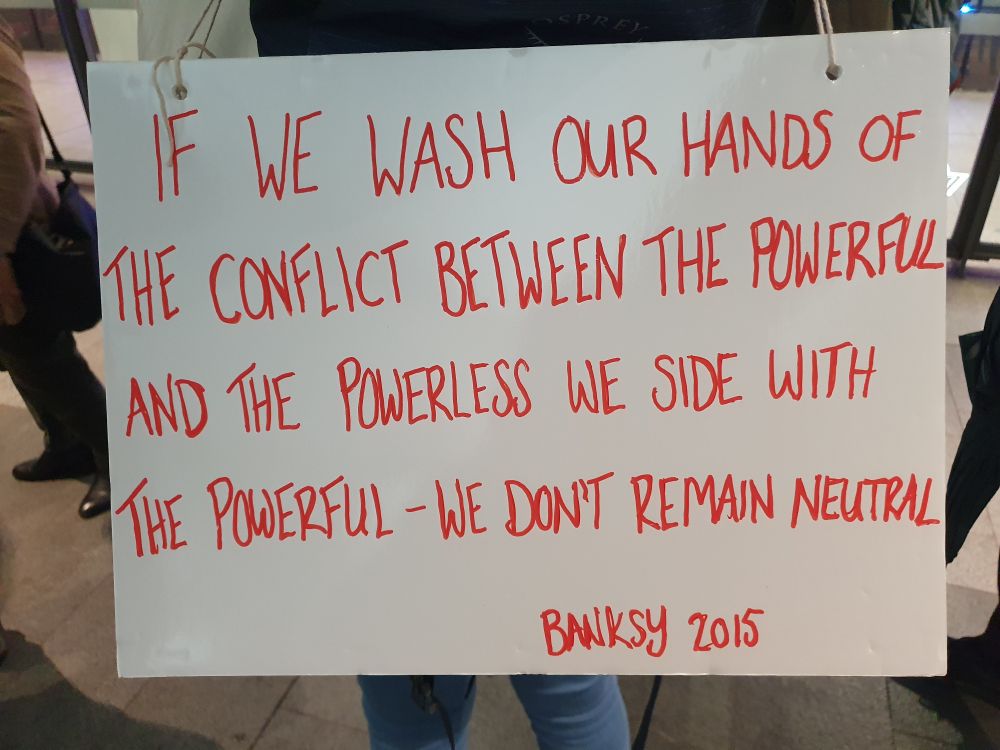 OSPREY
IF WE WASH OUR HANDS OF
THE CONFLICT BETWEEN THE POWERFUL
AND THE POWERLESS WE SIDE WITH
THE POWERFUL - WE DON'T REMAIN NEUTRAL
BANKSY 2015